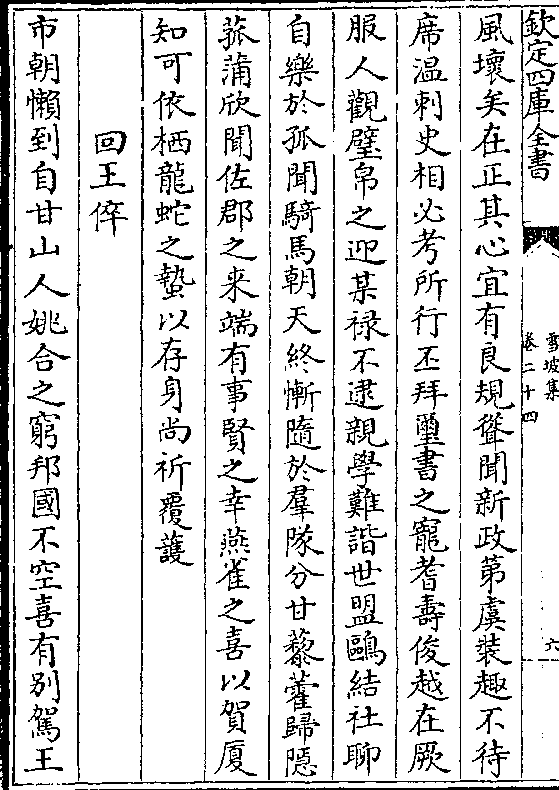 欽定四庫全書
雪坡集
卷二十四
六
風壞矣在正其心宜有良規聳聞新政第虞裝趣不待
席温刺史相必考所行丕拜璽書之寵耆壽俊越在厥
服人觀璧帛之迎某禄不逮親學難諧世盟鷗結社聊
自樂於孤聞騎馬朝天終慚隨於羣隊分甘藜藿歸隠
菰蒲欣聞佐郡之来端有事賢之幸燕雀之喜以賀厦
知可依栖龍蛇之蟄以存身尚祈覆䕶
回王倅
市朝懶到自甘山人姚合之窮邦國不空喜有别駕王